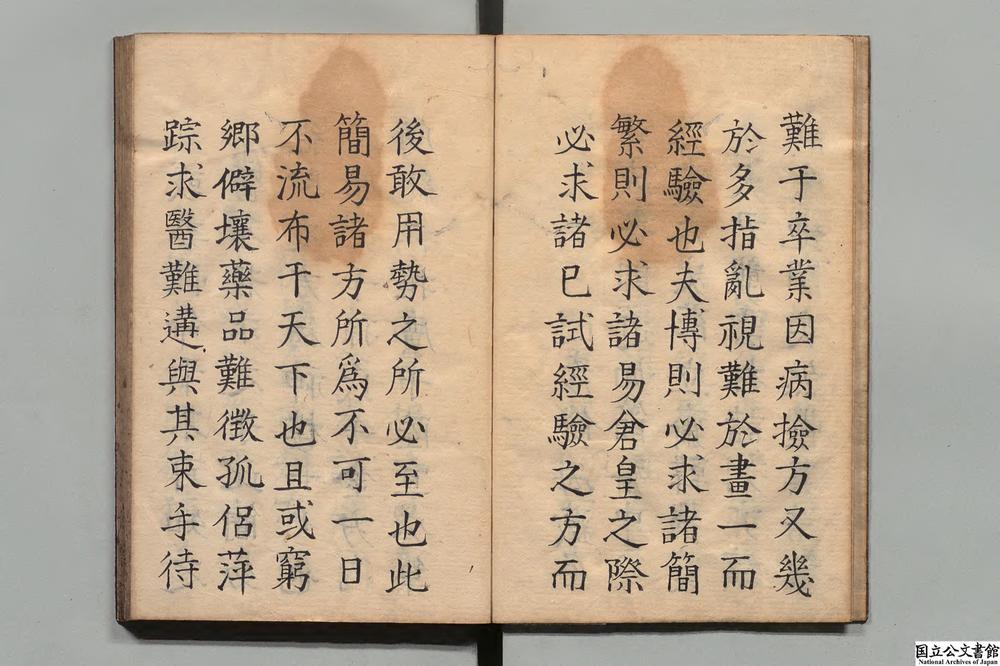 難于卒業因病撿方又幾
於多指亂視難於畫一而
經驗也夫博則必求諸簡
繁則必求諸易倉皇之際
必求諸已試經驗之方而
後敢用勢之所必至也此
簡易諸方所爲不可一日
不流布于天下也且或窮
鄉僻壤藥品難徵孤侶萍
踪求醫難遘與其束手待
国立公文書館
National Archives of Japan